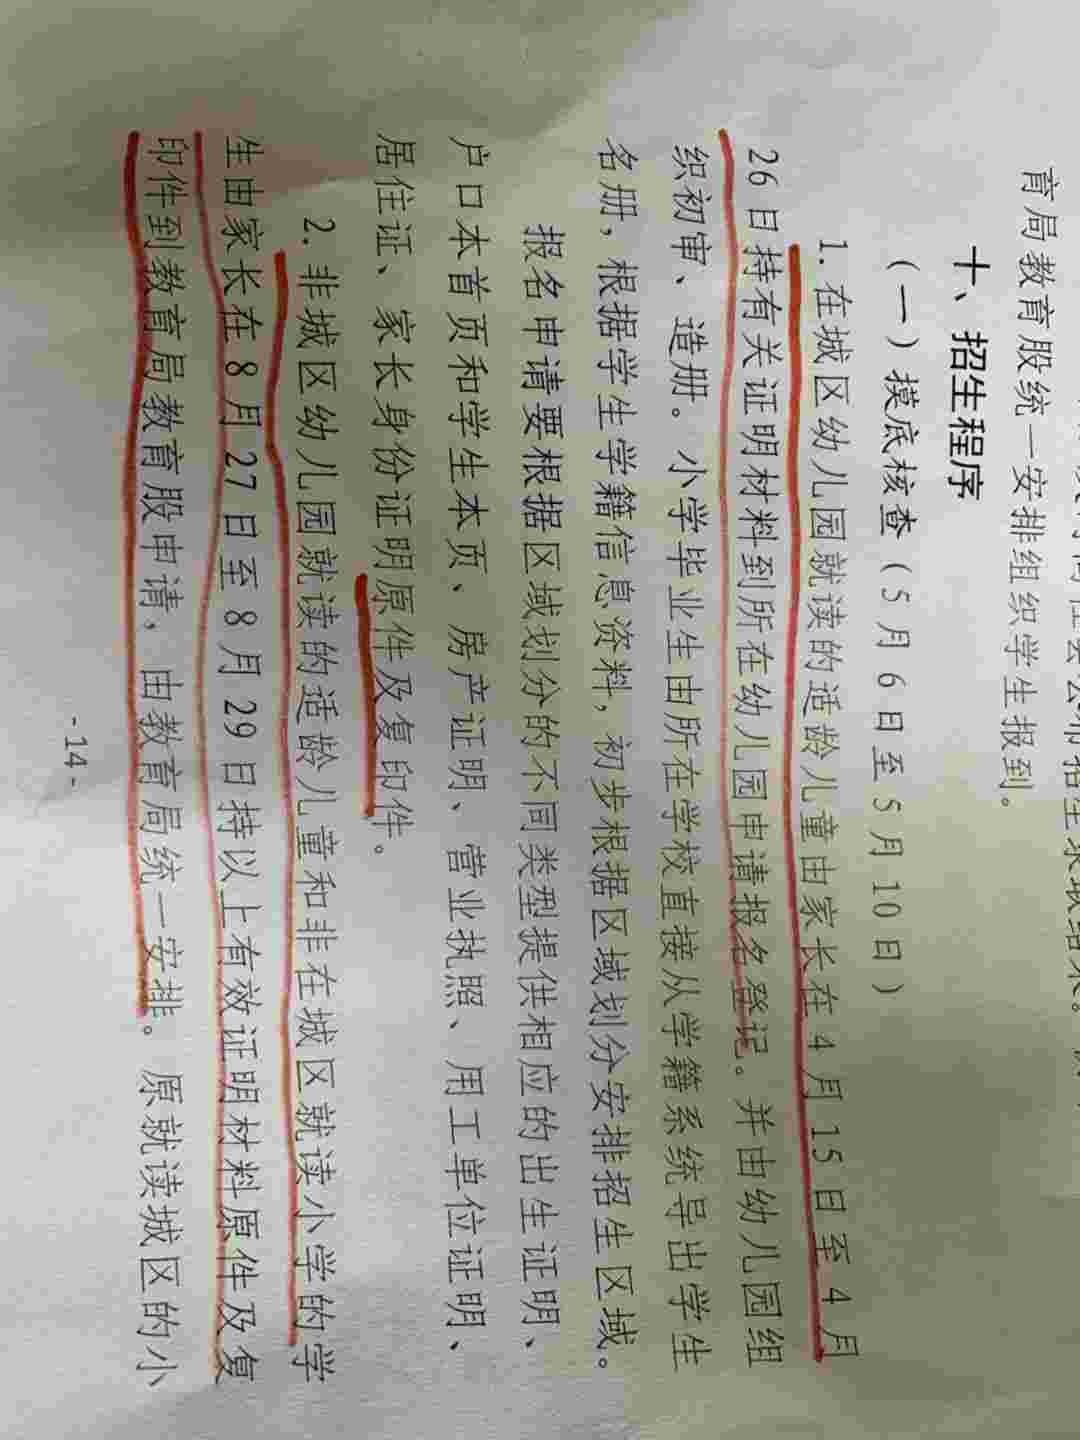 育局教育股统一安排组织学生报到。
十、招生程序
（一）摸底核查（5月6日至5月10日）
1.在城区幼儿园就读的适龄儿童由家长在4月15日至4月
26日持有关证明材料到所在幼儿园申请报名登记。并由幼儿园组
织初审、造册。小学毕业生由所在学校直接从学籍系统导出学生
名册，根据学生学籍信息资料，初步根据区域划分安排招生区域。
报名申请要根据区域划分的不同类型提供相应的出生证明、
户口本首页和学生本页、房产证明、营业执照、用工单位证明、
居住证、家长身份证明原件及复印件。
2.非城区幼儿园就读的适龄儿童和非在城区就读小学的学
生由家长在8月27日至8月29日持以上有效证明材料原件及复
印件到教育局教育股申请，由教育局统一安排。原就读城区的小
-14-